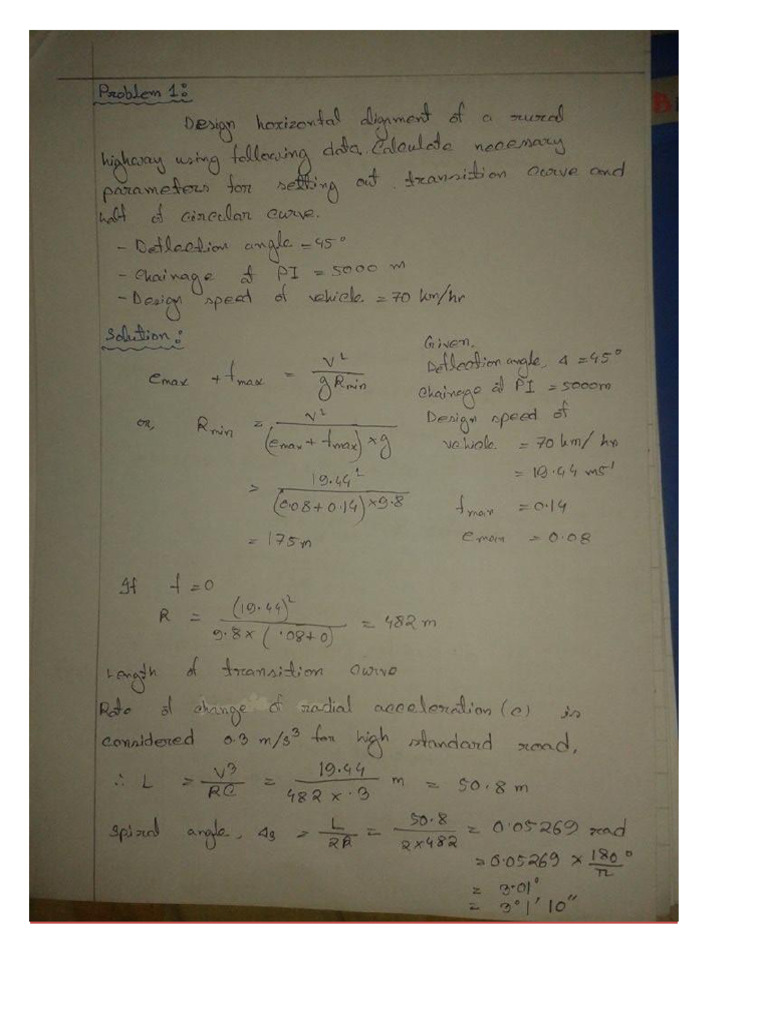 Problem 1:
Design horizontal alignment of a rural
highway using following data. Calculate necessary
parameters for setting out transition curve and
half of circular curve.
- Deflection angle = 45°
- Chainage of PI = 5000 m
- Design speed of vehicle = 70 km/hr
Solution:
Given,
Deflection angle, Δ = 45°
Chainage of PI = 5000m
Design speed of
vehicle = 70 km/hr
= 19.44 ms⁻¹
f max = 0.14
e max = 0.08
e max + f max = V² / g R min
or, R min = V² / (e max + f max) × g
= 19.44² / (0.08 + 0.14) × 9.8
= 175m
If f = 0
R = (19.44)² / 9.8 × (.08+0) = 482 m
Length of transition curve
Rate of change of radial acceleration (c) is
considered 0.3 m/s³ for high standard road,
∴ L = V³ / RC = 19.44 / 482 × .3 m = 50.8 m
Spiral angle, Δs = L / 2R = 50.8 / 2×482 = 0.05269 rad
= 0.05269 × 180° / π
= 3.01°
= 3° 1' 10"